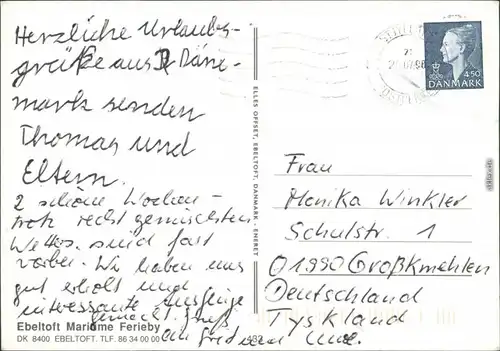 Herzliche Urlaubs-
grüße aus Däne-
mark senden
Thomas und
Eltern.
2 schöne Wochen -
trotz recht gemischten
Wetters. sind fast
vorbei. Wir haben uns
gut erholt und
interessante Ausflüge
gemacht. Gruß
an Gred und Uwe.
Ebeltoft Marime Ferieby
DK 8400 EBELTOFT. TLF. 86 34 00 00
ELLES OFFSET, EBELTOFT, DANMARK - ENERET
4.50
DANMARK
Frau
Monika Winkler
Schulstr. 1
01990 Großkmehlen
Deutschland
Tyskland